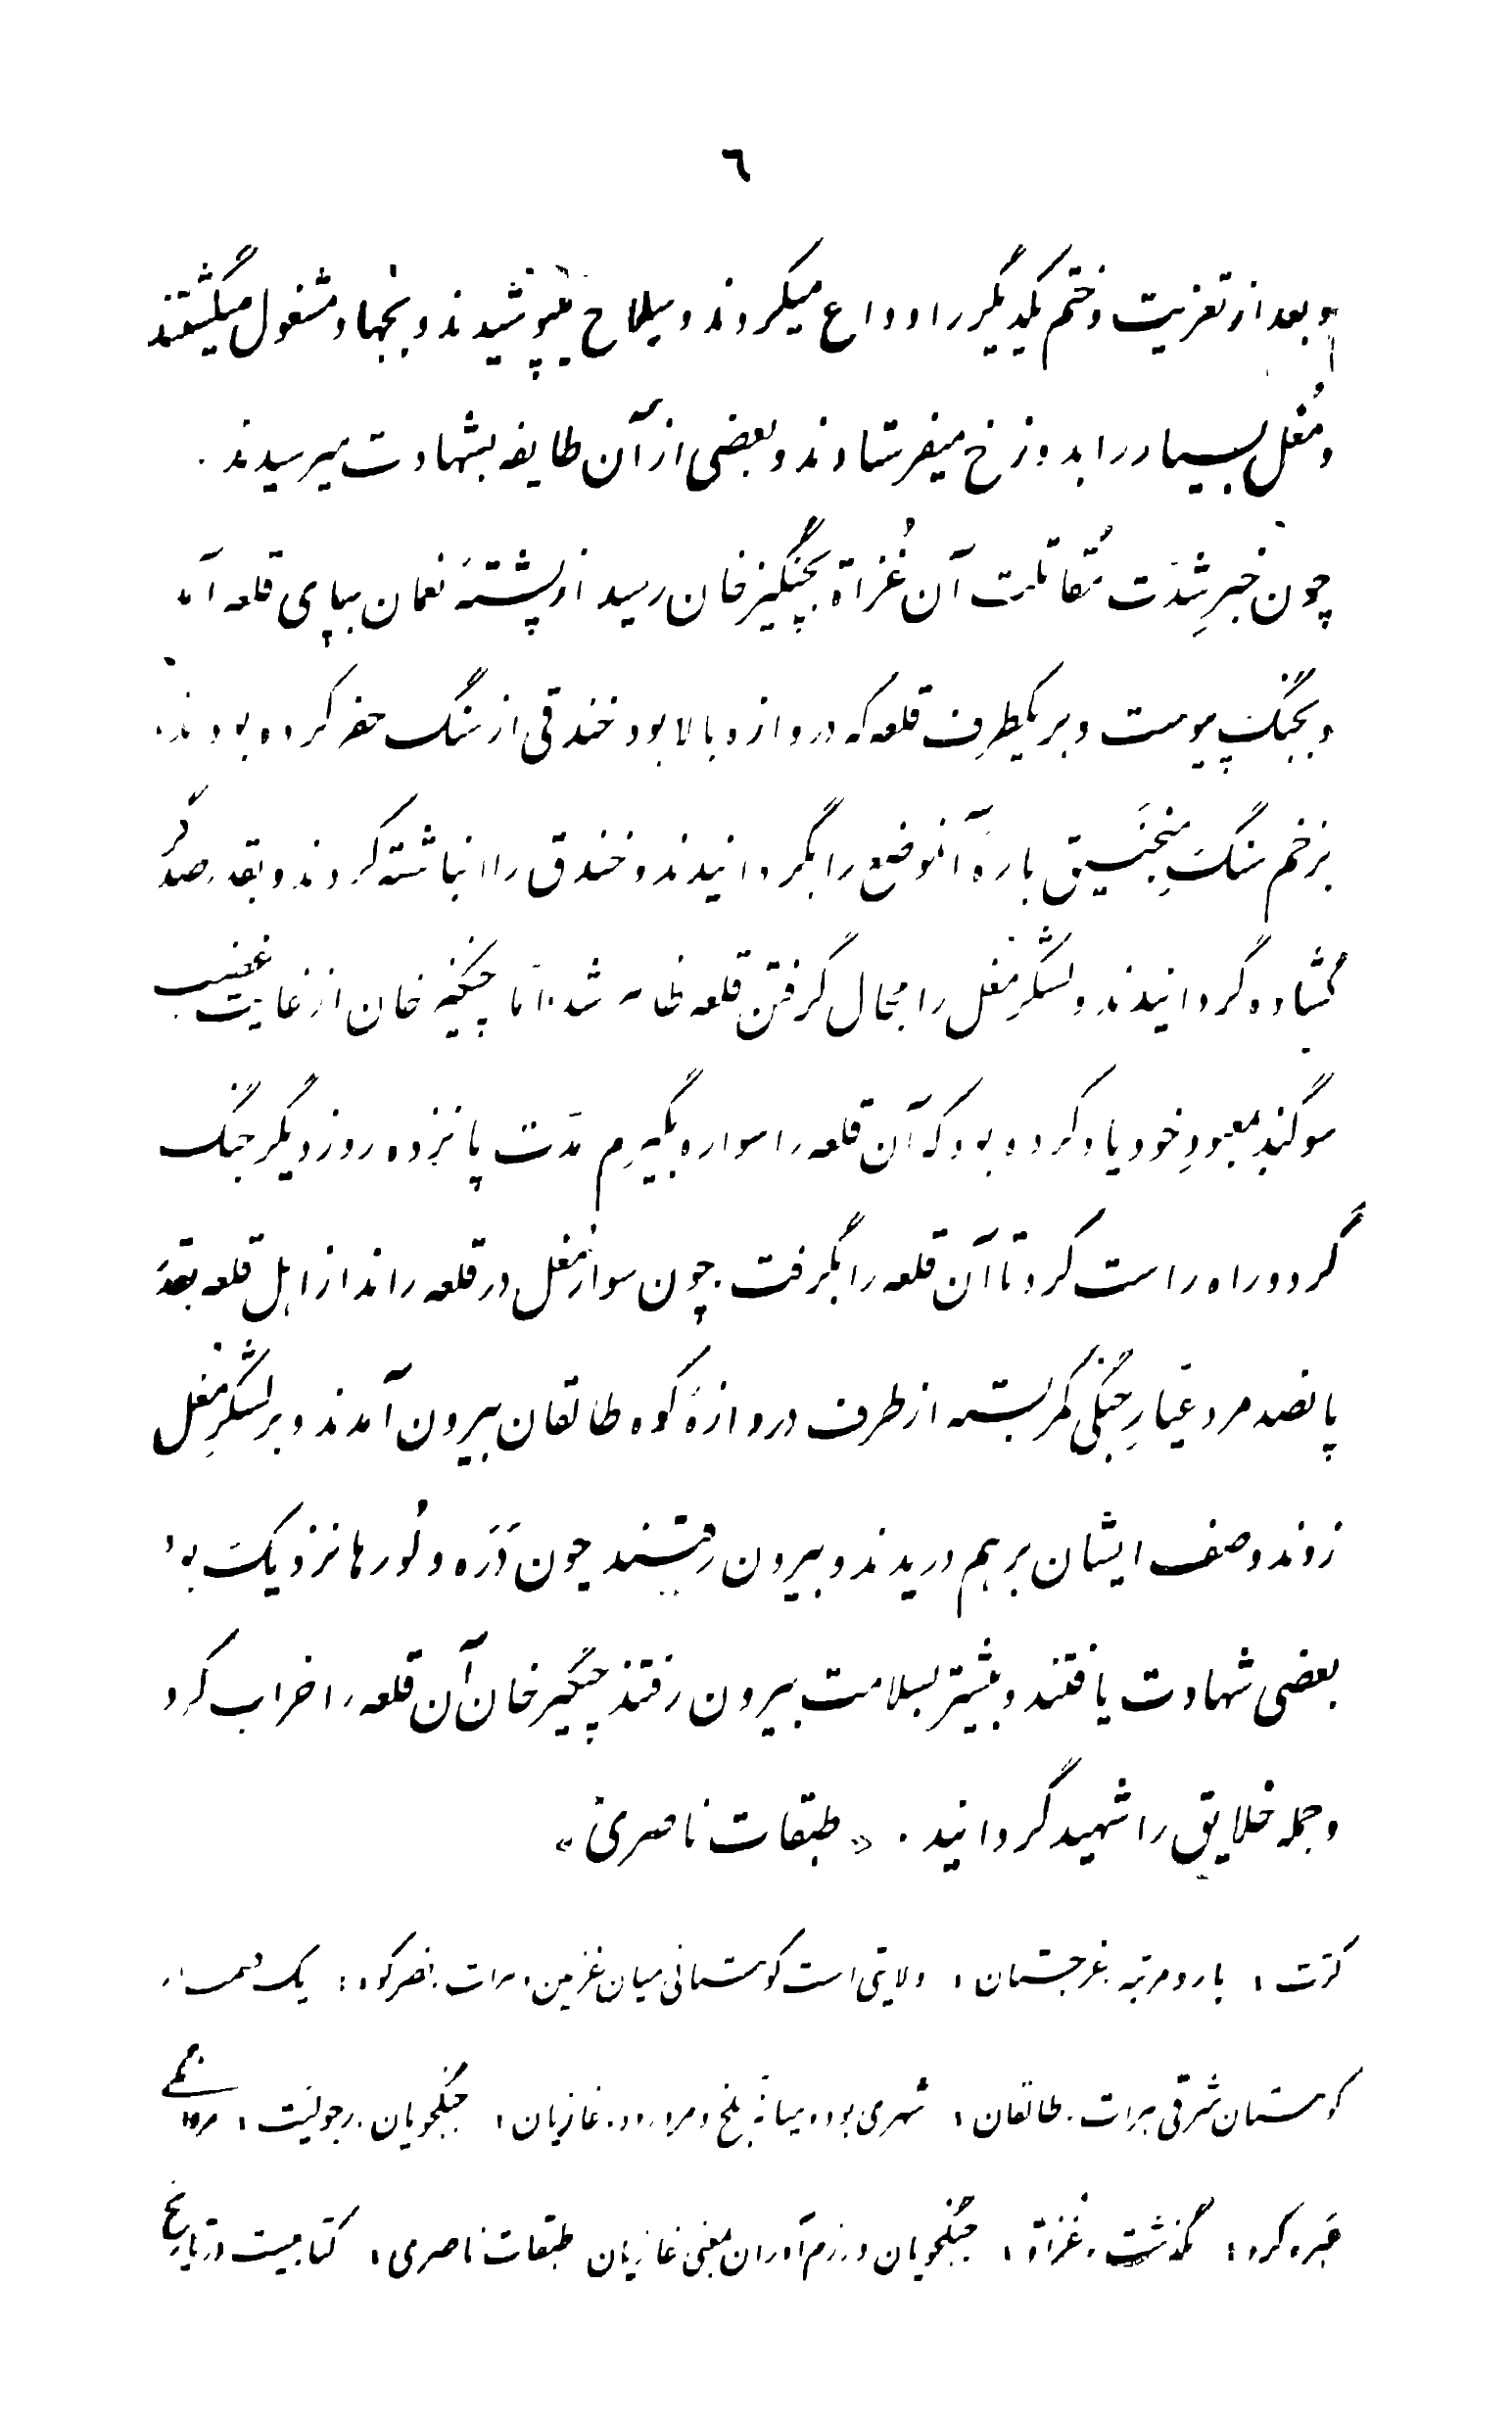 ٦
و بعد از تعزیت و ختم یکدیگر را وداع میکردند و سلاح میپوشیدند و بجهاد مشغول میگشتند
و مُغل بسیار را بدوزخ میفرستادند و بعضی از آن طایفه بشهادت میرسیدند .
چون خبرِ شِدَت مُقاتلت آن غُزاة بچنگیز خان رسید از پشتهٔ نعمان بپای قلعه آمد
و بجنگ پیوست و بر یکطرفِ قلعه که دروازهٔ بالا بود خندقی از سنگ حفر کرده بودند.
بزخم سنگِ مِنجَنیق بارهٔ آنموضع را بگردانیدند و خندق را انباشته کردند و بقدر صد گز
گشاده گردانیدند و لشکرِ مغل را مجال گرفتن قلعه ظاهر شد. امّا چنگیز خان از غایت غضب
سوگندِ معبودِ خود یاد کرده بود که آن قلعه را سواره بگیرم مدّت پانزده روز دیگر جنگ
کرد و راه راست کرد تا آن قلعه را بگرفت . چون سوارِ مغل در قلعه راند از اهل قلعه بقدر
پانصد مرد عیّارِ جنگی کمر بسته از طرف دروازهٔ کوه طالقان بیرون آمدند و بر لشکرِ مغل
زدند و صف ایشان بر هم دریدند و بیرون رفتند چون دَرَه و لُورها نزدیک بود
بعضی شهادت یافتند و بیشتر بسلامت بیرون رفتند چنگیز خان آن قلعه را خراب کرد
و جمله خلایق را شهید گردانید . « طبقات ناصری »
کرّت : بار و مرتبه . غرجستان : ولایتی است کوهستانی میان غزنین و هرات . نصر کوه : یک حصار
کوهستان شرقی هرات . طالقان : شهری بوده میانهٔ بلخ و مرو رود . غازیان : جنگجویان . رجولیّت :
عَبره کرد : گذشت . غُزاة : جنگجویان و رزم آوران بمعنی غازیان طبقات ناصری : کتابیست در تاریخ